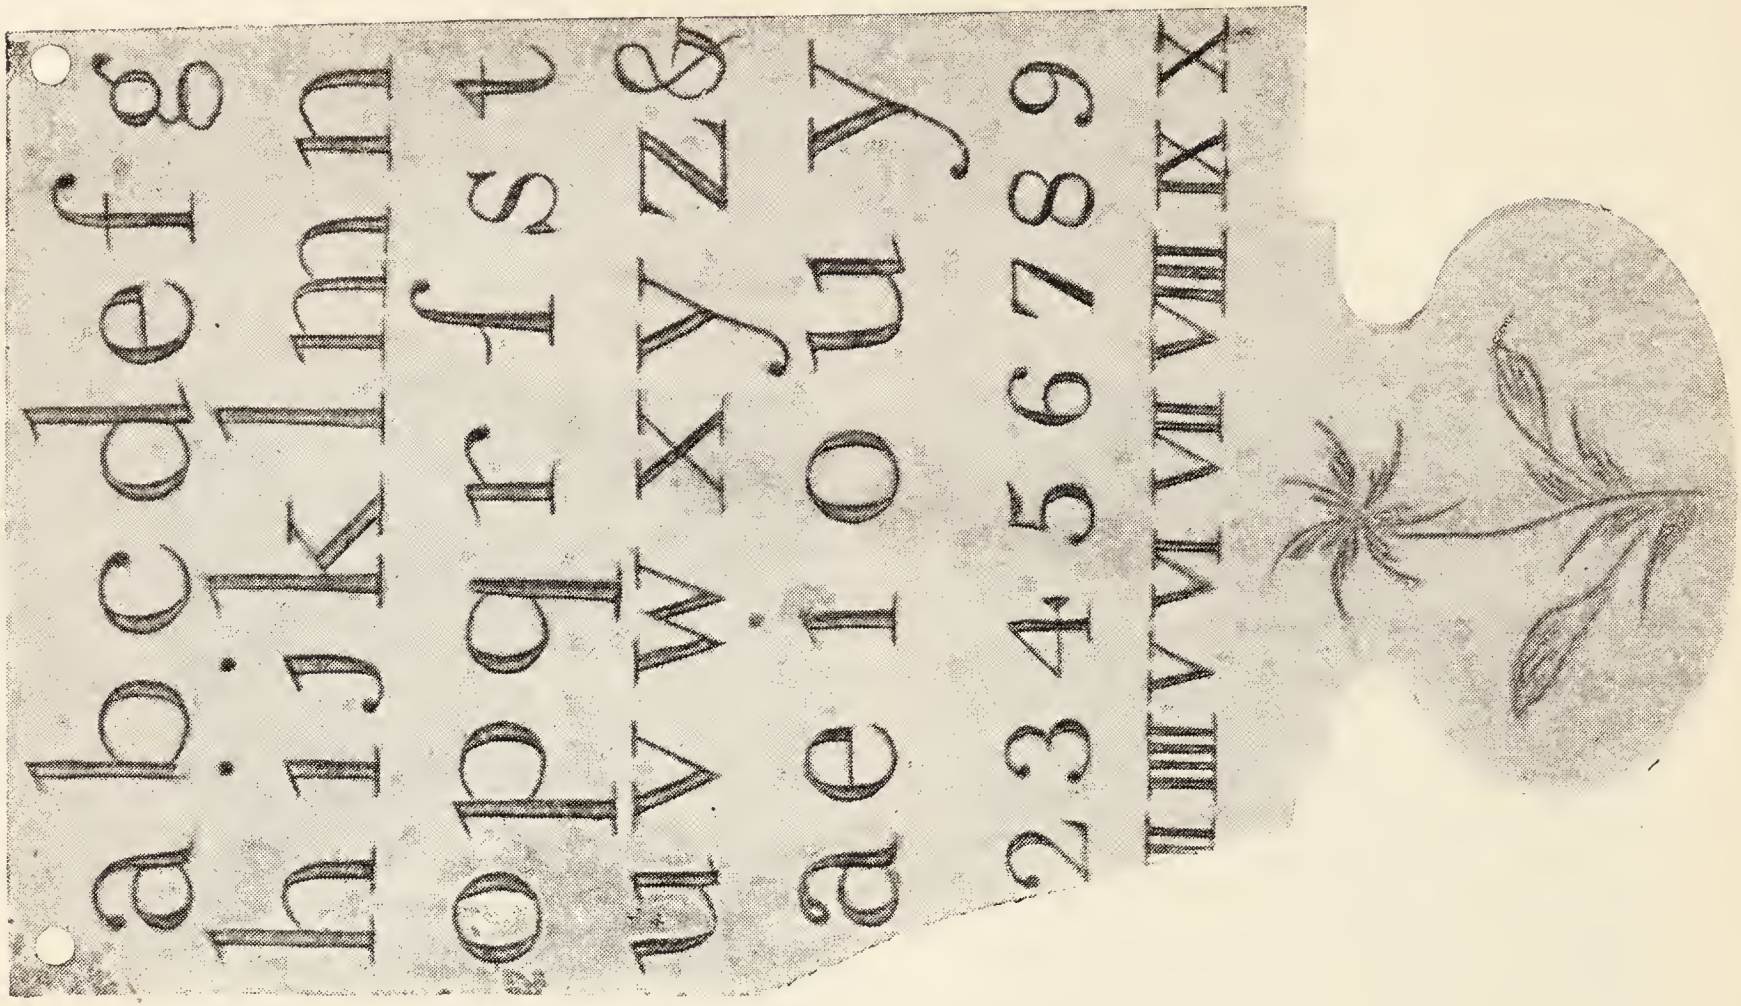 a b c d e f g
h i j k l m n
o p q r ſ s t
u v w x y z &
a e i o u y
2 3 4 5 6 7 8 9
II IIII V VI VII VIII IX X